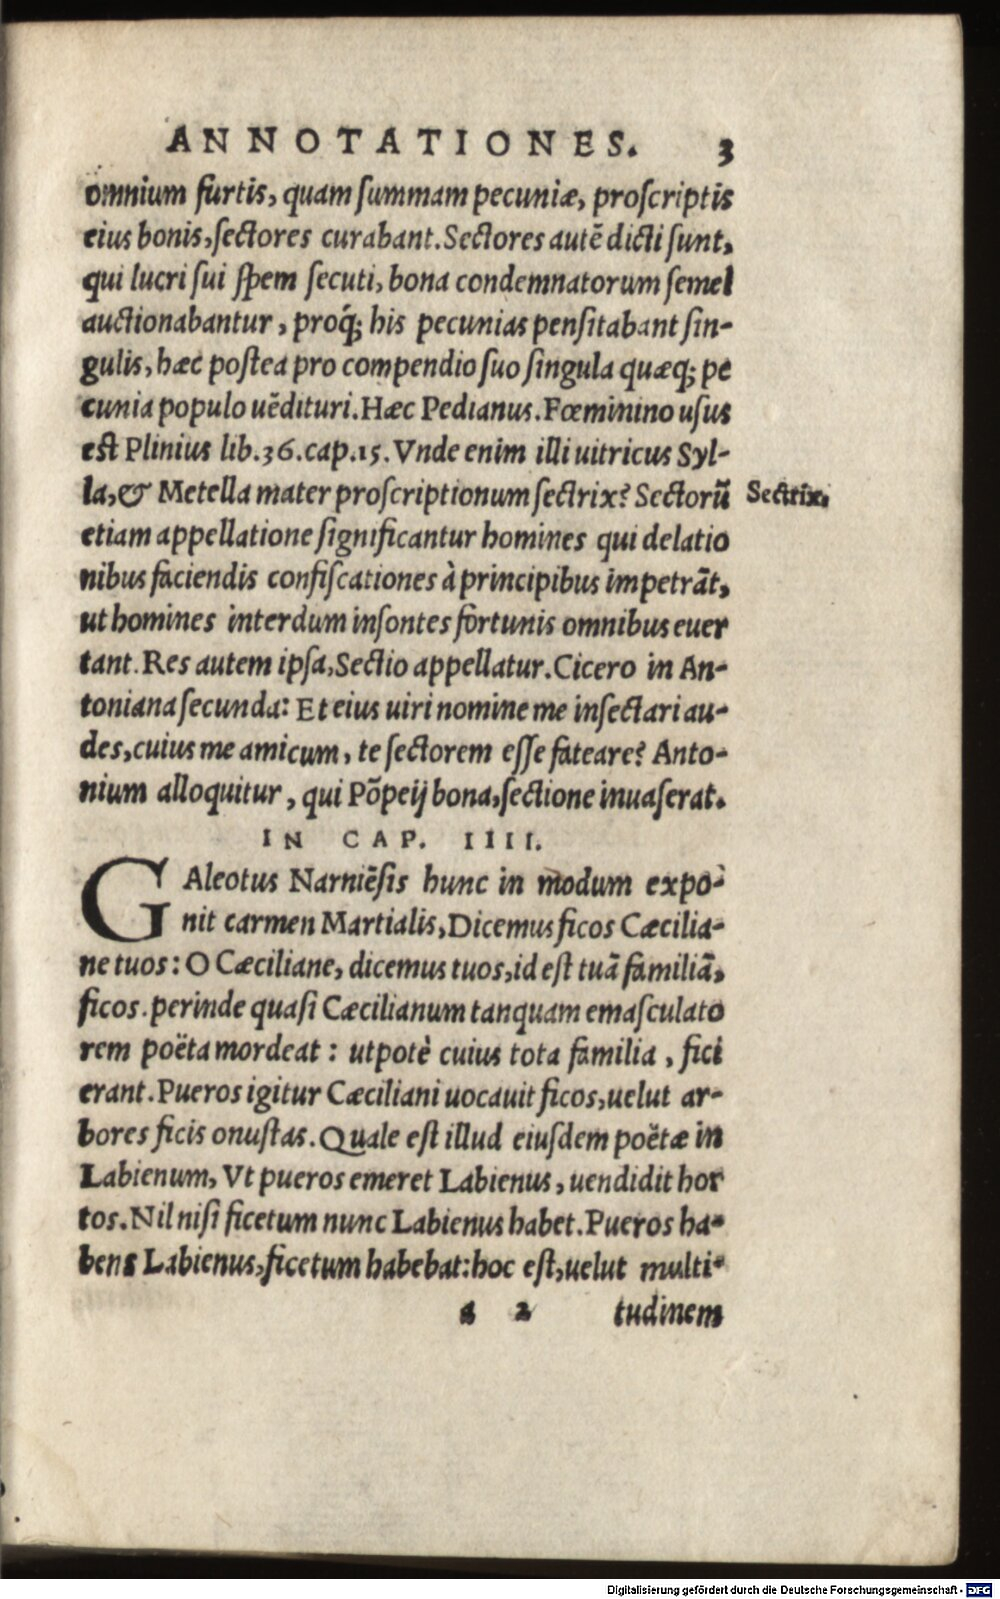 ANNOTATIONES. 3
omnium furtis, quam ſummam pecuniæ, proſcriptis
eius bonis, ſectores curabant. Sectores autē dicti ſunt,
qui lucri ſui ſpem ſecuti, bona condemnatorum ſemel
auctionabantur, proq́; his pecunias penſitabant ſin-
gulis, hæc poſtea pro compendio ſuo ſingula quæq; pe
cunia populo uēdituri. Hæc Pedianus. Fœminino uſus
eſt Plinius lib.36.cap.15. Vnde enim illi uitricus Syl-
la, & Metella mater proſcriptionum ſectrix? Sectorū
Sectrix.
etiam appellatione ſignificantur homines qui delatio
nibus faciendis confiſcationes à principibus impetrāt,
ut homines interdum inſontes fortunis omnibus euer
tant. Res autem ipſa, Sectio appellatur. Cicero in An-
toniana ſecunda: Et eius uiri nomine me inſectari au-
des, cuius me amicum, te ſectorem eſſe fateare? Anto-
nium alloquitur, qui Pōpeij bona, ſectione inuaſerat.
IN CAP. IIII.
GAleotus Narniēſis hunc in modum expo-
nit carmen Martialis, Dicemus ficos Cæcilia-
ne tuos: O Cæciliane, dicemus tuos, id eſt tuā familiā,
ficos. perinde quaſi Cæcilianum tanquam emaſculato
rem poëta mordeat: utpotè cuius tota familia, fici
erant. Pueros igitur Cæciliani uocauit ficos, uelut ar-
bores ficis onuſtas. Quale eſt illud eiuſdem poëtæ in
Labienum, Vt pueros emeret Labienus, uendidit hor
tos. Nil niſi ficetum nunc Labienus habet. Pueros ha-
bens Labienus, ficetum habebat: hoc eſt, uelut multi-
a 2 tudinem
Digitalisierung gefördert durch die Deutsche Forschungsgemeinschaft - DFG